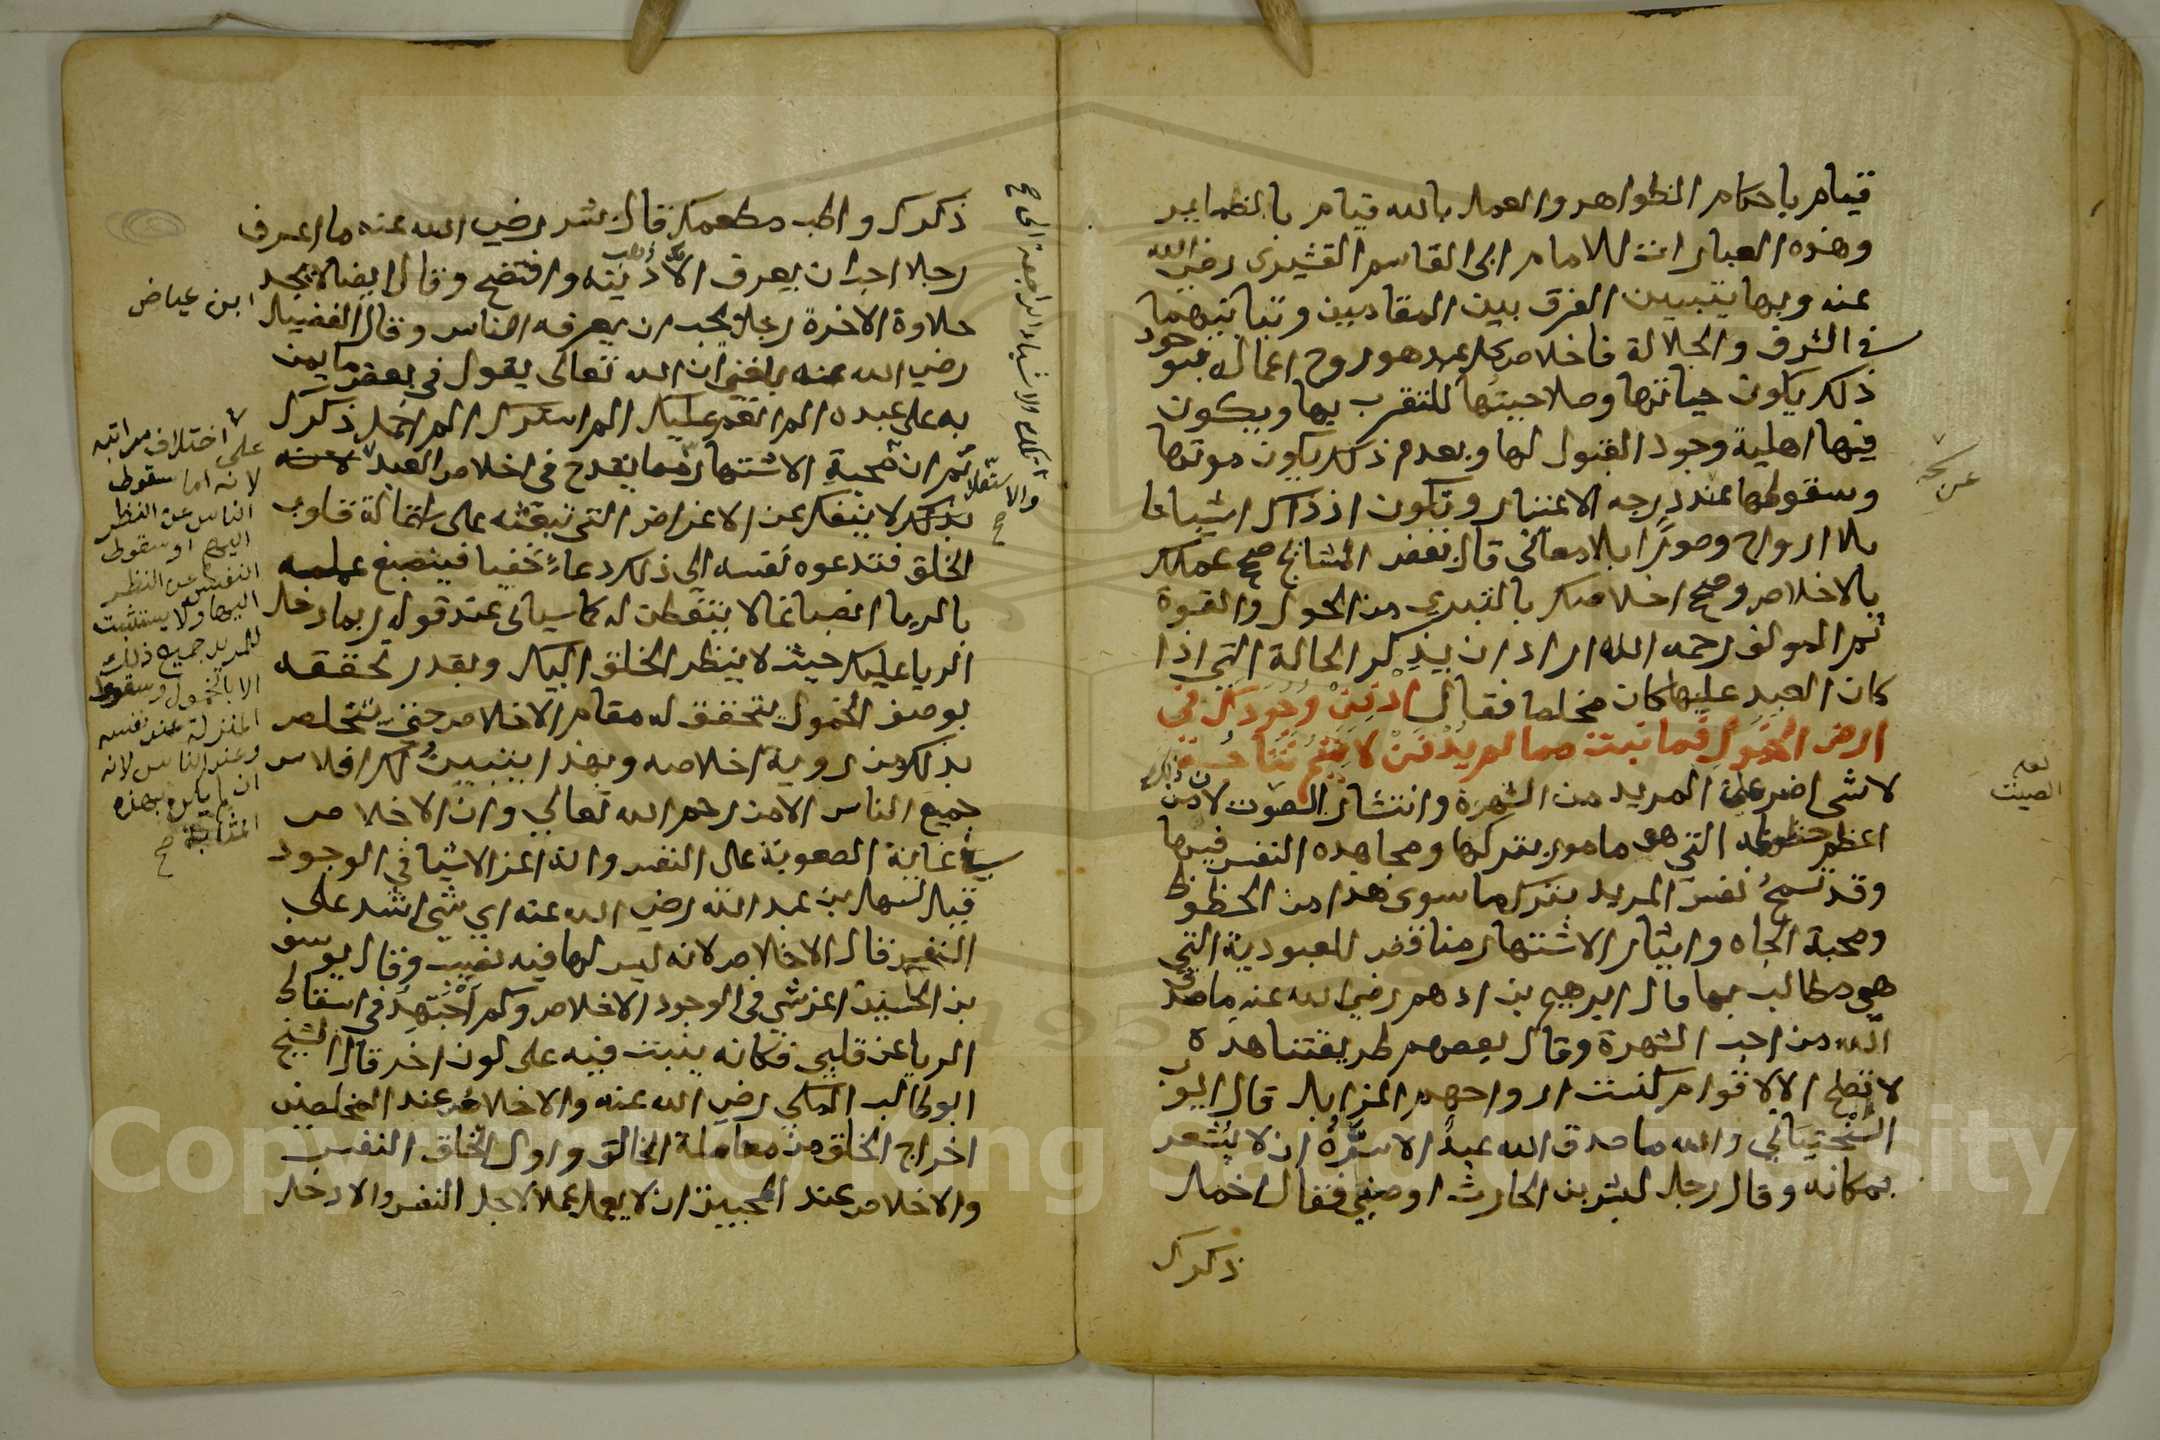 قيام باحكام الظواهر والعمل بالله قيام بالضماير
وهذه العبارات للامام ابى القاسم القشيرى رضي الله
عنه وبها يتبين الفرق بين المقامين وتباينهما
في الشرف والجلالة فاخلاص كل عبد هو روح اعماله فبوجود
ذلك يكون حياتها وصلاحيتها للتقرب بها ويكون
فيها اهلية وجود القبول لها وبعدم ذلك يكون موتها
وسقوطها عن درجه الاعتبار وتكون اذ ذاك اشباحا
بلا ارواح وصورًا بلا معانى قال بعض المشايخ صحح عملك
بالاخلاص وصحح اخلاصك بالتبري من الحول والقوة
ثم المولف رحمه الله اراد ان يذكر الحالة التي اذا
كان العبد عليها كان مخلصا فقال ادفن وجودك في
ارض الخمول فما نبت مما لم يدفن لا يتم نتاجه
لا شى اضر على المريد من الشهرة وانتشار الصوت لان ذلك من
اعظم حظوظه التي هو مامور بتركها ومجاهدة النفس فيها
وقد تسمح نفس المريد بترك ما سوى هذا من الحظوظ
ومحبة الجاه وايثار الاشتهار مناقض للعبودية التي
هي مطالب بها قال ابرهيم بن ادهم رضي الله عنه ما صدق
الله من احب الشهرة وقال بعضهم طريقتنا هذه
لا تصلح الا لاقوام كنست ارواحهم المزابل قال ايوب
السختياني والله ما صدق الله عبدًا الا سره ان لا يشعر
بمكانه وقال رجل لبشر بن الحارث اوصني فقال اخمل
ذكرك
عن
صح
لعله
الصيت
ذكرك واطب مطعمك قال بشر رضي الله عنه ما اعرف
رجلا احب ان يعرف الا ذهب دينه وافتضح وقال ايضا لا يجد
حلاوة الاخرة رجل يحب ان يعرفه الناس وقال الفضيل
رضي الله عنه بلغني ان الله تعالى يقول في بعض ما يمن
به على عبده الم انعم عليك الم استرك الم اخمل ذكرك
ثم ان محبة الاشتهار مما يقدح في اخلاص العبد لانه
بذلك لا ينفك عن الاغراض التي تبعثه على استمالة قلوب
الخلق فتدعوه نفسه الى ذلك دعاءً خفيا فينصبغ عمله
بالريا انصباغا لا يتفطن له كما سياتى عند قوله ربما دخل
الريا عليك حيث لا ينظر الخلق اليك وبقدر تحققه
بوصف الخمول يتحقق له مقام الاخلاص حتى يتخلص
بذلك من روية اخلاصه وبهذا يتبين لك افلاس
جميع الناس الا من رحم الله تعالى وان الاخلاص
في غاية الصعوبة على النفس وانه اعز الاشيا في الوجود
قيل لسهل بن عبد الله رضي الله عنه اي شى اشد على
النفس قال الاخلاص لانه ليس لها فيه نصيب وقال يوسف
بن الحسين اعز شي في الوجود الاخلاص وكم اجتهد في اسقاط
الريا عن قلبي فكانه ينبت فيه على لون اخر قال الشيخ
ابو طالب المكي رضي الله عنه والاخلاص عند المخلصين
اخراج الخلق من معاملة الخالق واول الخلق النفس
والاخلاص عند المحبين ان لا يعمل عملا لاجل النفس والا دخل
ابن عياض
على اختلاف مراتبه
لانه اما سقوط
الناس عن النظر
اليهم او سقوط
النفس عن النظر
اليها ولا يستتب
للمريد جميع ذلك
الا بالخمول وسقوط
المنزلة عند نفسه
وعند الناس لانه
ان لم يكن بهذه
المثابة
صح
Copyright © King Saud University
1957